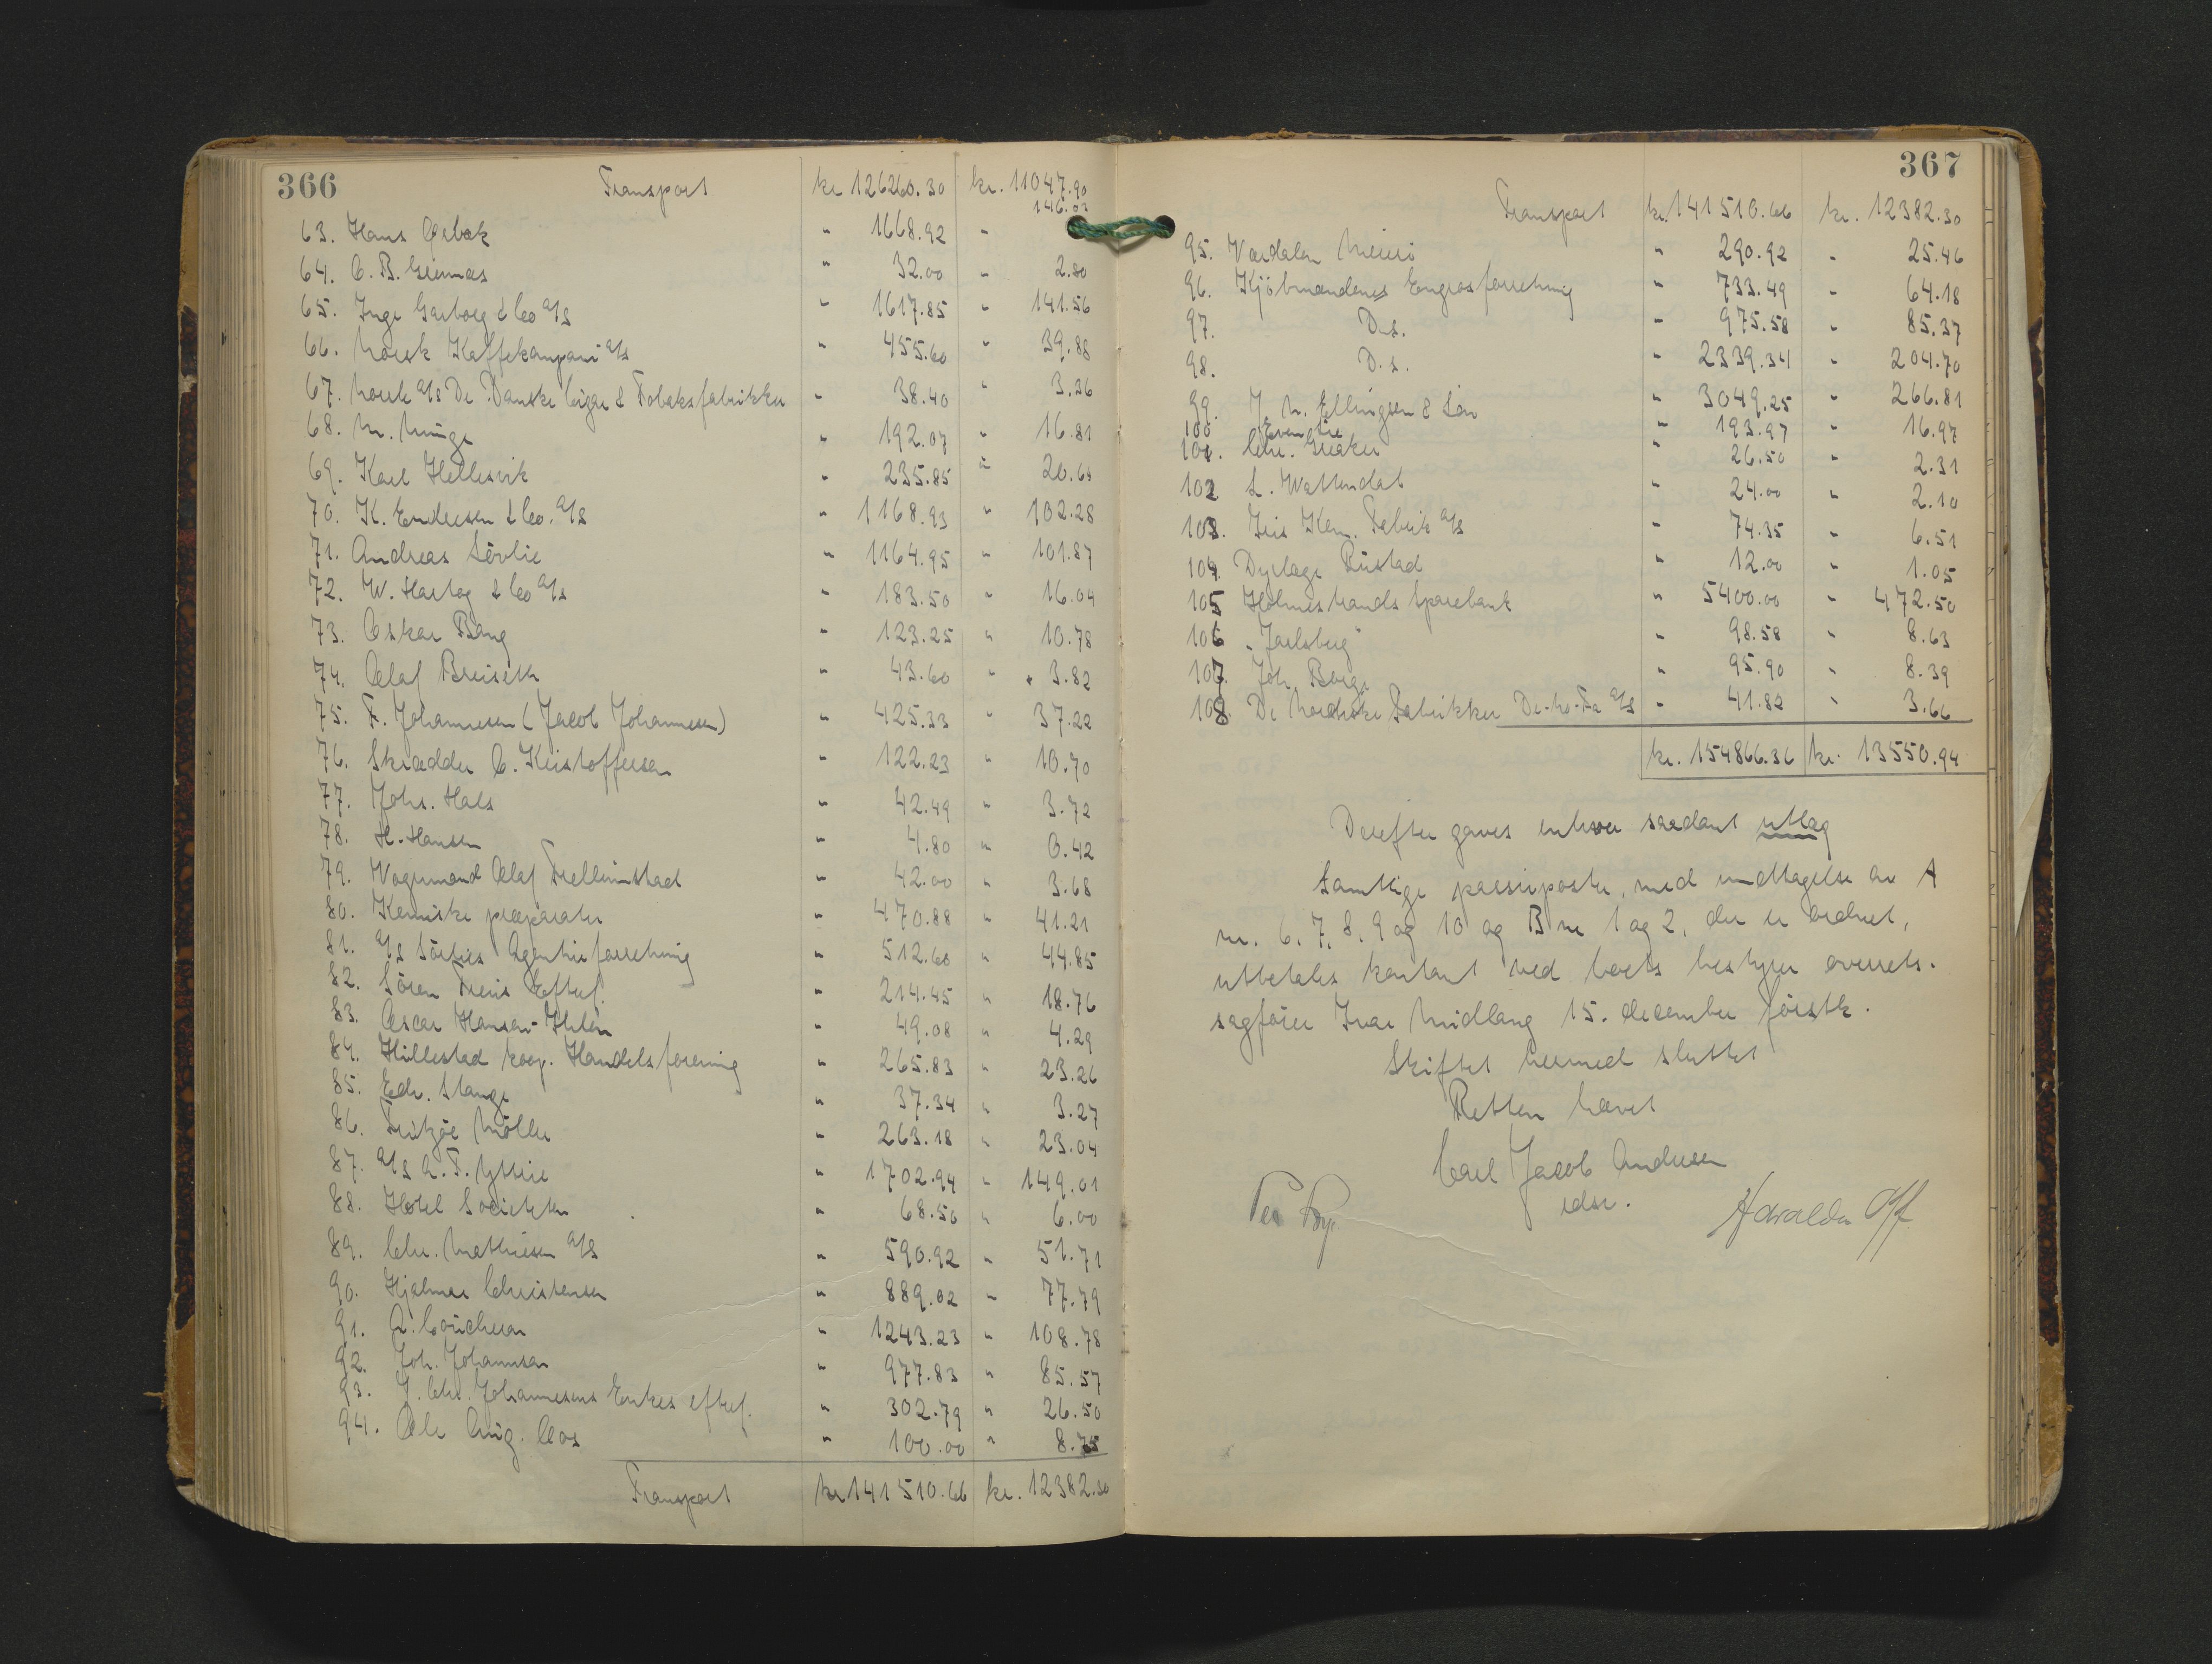 366
Transport kr 126260.30 kr. 11047.90
63. Hans Ørbæk " 1668.92 " 146.02
64. O. B. Grennes " 32.00 " 2.80
65. Inge Garborg & Co A/S " 1617.85 " 141.56
66. Norsk Kaffekompani A/S " 455.60 " 39.88
67. Norsk A/S De Danske Cigar & Tobaksfabrikker " 38.40 " 3.36
68. M. Minge " 192.07 " 16.81
69. Karl Hellesvik " 235.85 " 20.64
70. K. Endresen & Co. A/S " 1168.93 " 102.28
71. Andreas Lövlie " 1164.95 " 101.87
72. W. Hartog & Co A/S " 183.50 " 16.04
73. Oskar Bang " 123.25 " 10.78
74. Olaf Breiseth " 43.60 " 3.82
75. F. Johannesen (Jacob Johannesen) " 425.33 " 37.22
76. Skrædder O. Kristoffersen " 122.23 " 10.70
77. Johs. Hals " 42.49 " 3.72
78. H. Hansen " 4.80 " 0.42
79. Vognmand Olaf Trellimstad " 42.00 " 3.68
80. Kemiske præparater " 470.88 " 41.21
81. A/S Agenturforretning " 512.60 " 44.85
82. Sören Friis Eftf. " 214.45 " 18.76
83. Oscar Hansen-Ihlen " 49.08 " 4.29
84. Hillestad koop. Handelsforening " 265.83 " 23.26
85. Edv. Stange " 37.34 " 3.27
86. Fritzöe Möller " 263.18 " 23.04
87. A/S A. F. Yttrie " 1702.94 " 149.01
88. Hotel Societeten " 68.50 " 6.00
89. Chr. Mathiesen A/S " 590.92 " 51.71
90. Hjalmar Christensen " 889.02 " 77.79
91. A. " 1243.23 " 108.78
92. Joh. Johannsen " 977.83 " 85.57
93. J. Chr. Johannesens Enkes eftf. " 302.79 " 26.50
94. Ole Aug. Aas " 100.00 " 8.75
Transport kr 141510.66 kr. 12382.30
367
Transport kr. 141510.66 kr. 12382.30
95. Værdalen Meieri " 290.92 " 25.46
96. Kjöbmændenes Engrosforretning " 733.49 " 64.18
97. D.s. " 975.58 " 85.37
98. D.s. " 2339.34 " 204.70
99. J. N. Ellingsen & Sön " 3049.25 " 266.81
100 Even Lie " 193.97 " 16.97
101. Chr. Greaker " 26.50 " 2.31
102 L. Wattendal " 24.00 " 2.10
103. Iris Kem. Fabrik A/S " 74.35 " 6.51
104. Dyrlæge Rustad " 12.00 " 1.05
105 Holmestrands Sparebank " 5400.00 " 472.50
106 "Jarlsberg" " 98.58 " 8.63
107. Joh Borge " 95.90 " 8.39
108. De Nordiske Fabrikker De-No-Fa A/S " 41.82 " 3.66
kr. 154866.36 kr. 13550.94
Derefter gaves enhver saadant utlæg
Samtlige passivposter, med undtagelse av A
nr. 6. 7, 8. 9 og 10 og B nr 1 og 2, der er ordnet,
utbetales kontant ved boets bestyrer overrets-
sagförer Ivar Midlang 15. december förstk.
Skiftet hermed sluttet
Retten hævet
Carl Jacob Andresen
edsv.
Per Harald Off